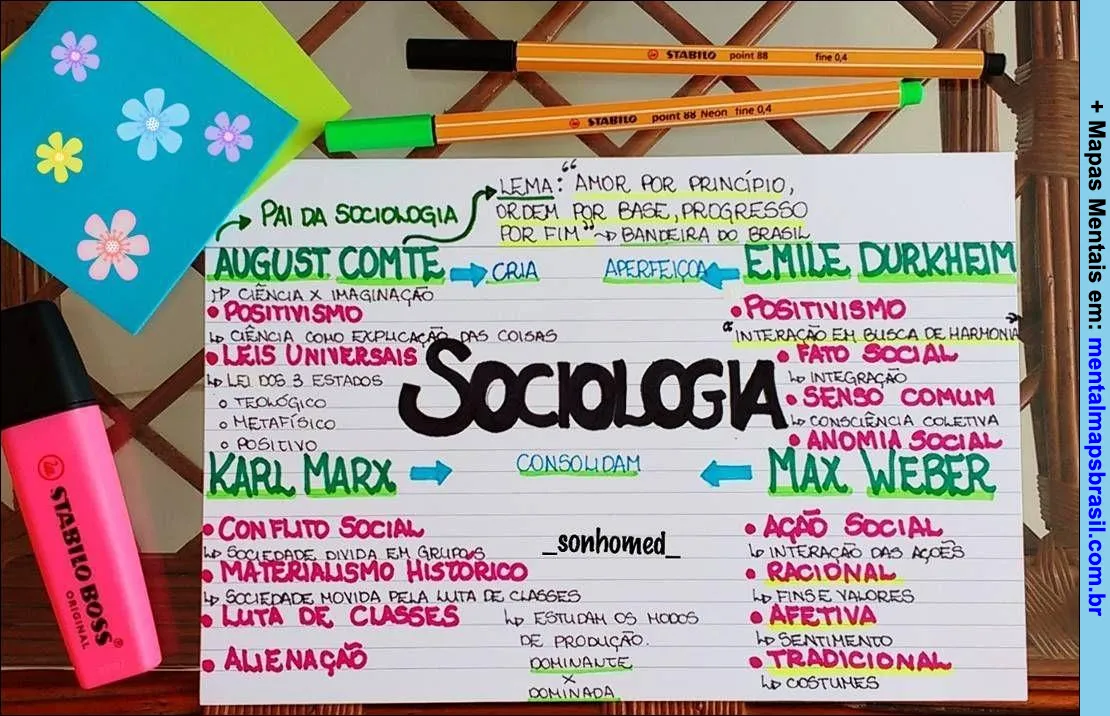 STABILO point 88 fine 0,4
STABILO point 88 Neon fine 0,4
LEMA: "AMOR POR PRINCÍPIO,
ORDEM POR BASE, PROGRESSO
POR FIM" BANDEIRA DO BRASIL
PAI DA SOCIOLOGIA
AUGUST COMTE CRIA
CIÊNCIA X IMAGINAÇÃO
• POSITIVISMO
CIÊNCIA COMO EXPLICAÇÃO DAS COISAS
• LEIS UNIVERSAIS
LEI DOS 3 ESTADOS
TEOLÓGICO
METAFÍSICO
POSITIVO
APERFEIÇOA EMILE DURKHEIM
• POSITIVISMO
"INTERAÇÃO EM BUSCA DE HARMONIA"
• FATO SOCIAL
INTEGRAÇÃO
• SENSO COMUM
CONSCIÊNCIA COLETIVA
• ANOMIA SOCIAL
SOCIOLOGIA
KARL MARX CONSOLIDAM MAX WEBER
• CONFLITO SOCIAL
SOCIEDADE DIVIDA EM GRUPOS
• MATERIALISMO HISTÓRICO
SOCIEDADE MOVIDA PELA LUTA DE CLASSES
• LUTA DE CLASSES
ESTUDAM OS MODOS
DE PRODUÇÃO.
DOMINANTE
X
DOMINADA
• ALIENAÇÃO
_sonhomed_
• AÇÃO SOCIAL
INTERAÇÃO DAS AÇÕES
• RACIONAL
FINS E VALORES
• AFETIVA
SENTIMENTO
• TRADICIONAL
COSTUMES
STABILO BOSS
ORIGINAL
+ Mapas Mentais em: mentalmapsbrasil.com.br